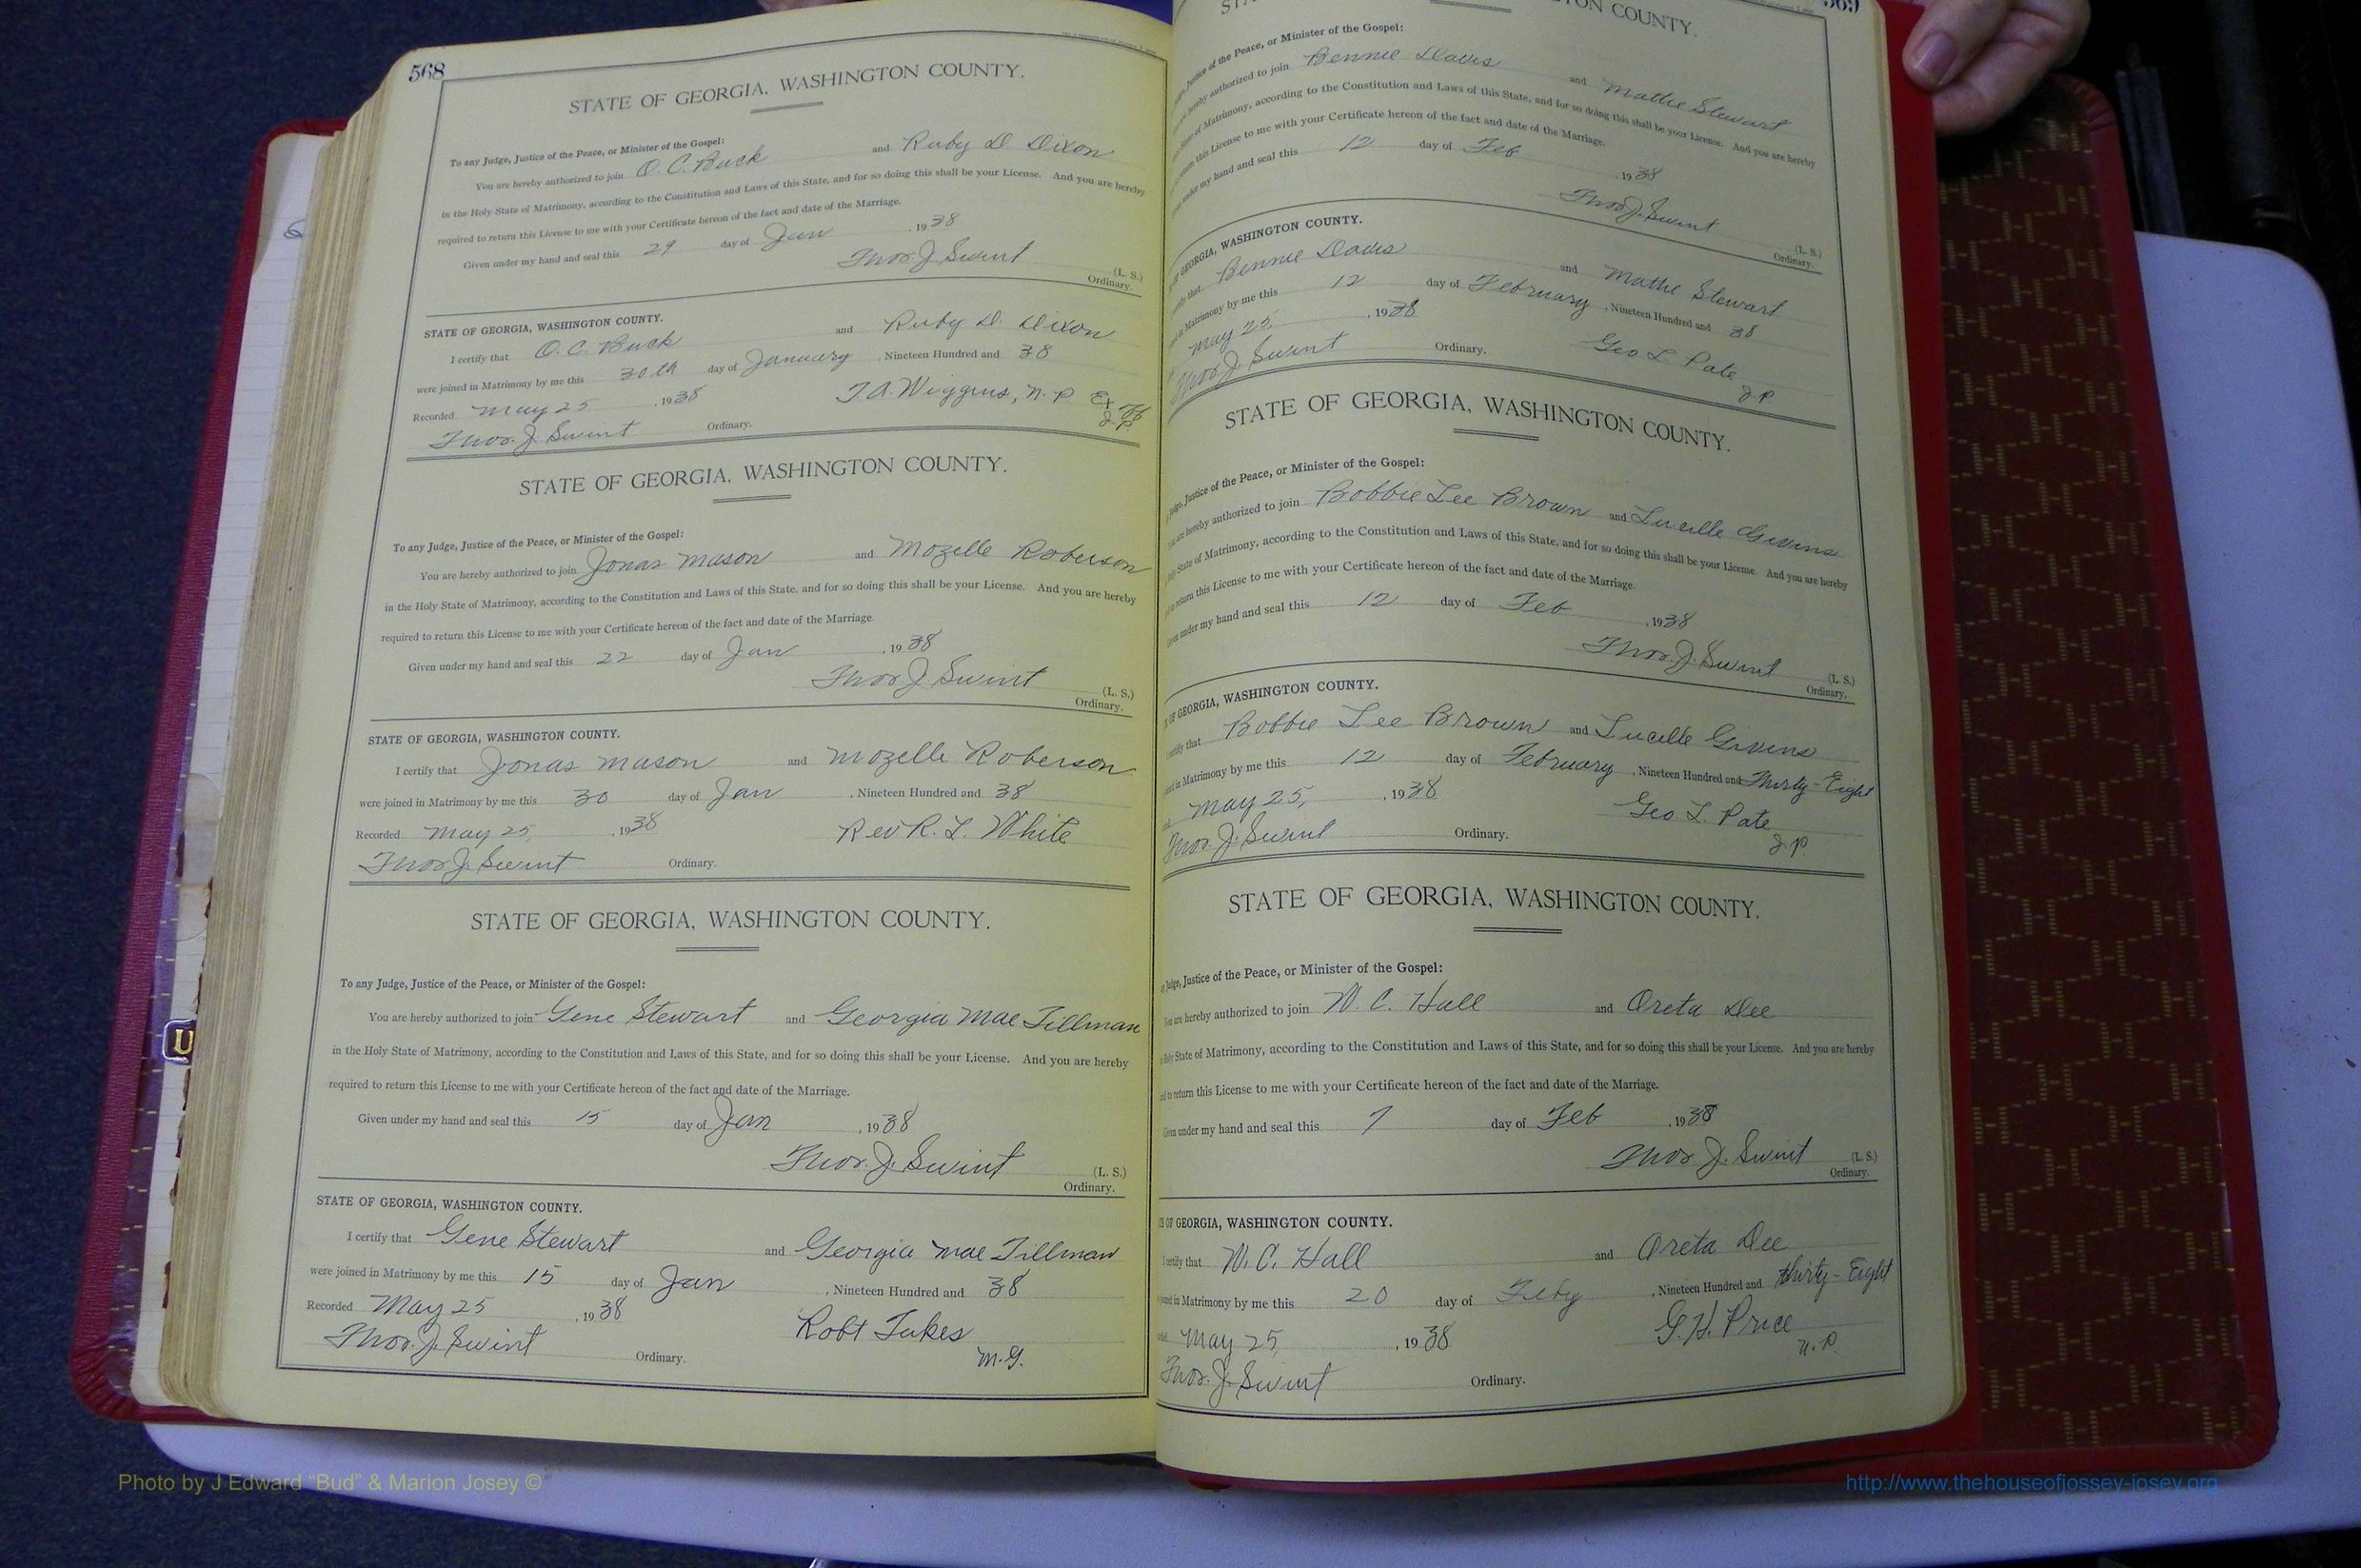 568
STATE OF GEORGIA, WASHINGTON COUNTY.
To any Judge, Justice of the Peace, or Minister of the Gospel:
You are hereby authorized to join O. C. Buck and Ruby D. Dixon
in the Holy State of Matrimony, according to the Constitution and Laws of this State, and for so doing this shall be your License. And you are hereby
required to return this License to me with your Certificate hereon of the fact and date of the Marriage.
Given under my hand and seal this 29 day of Jan , 1938
Thos. J. Swint (L. S.)
Ordinary.
STATE OF GEORGIA, WASHINGTON COUNTY.
I certify that O. C. Buck and Ruby D. Dixon
were joined in Matrimony by me this 30th day of January , Nineteen Hundred and 38
Recorded May 25 , 1938 T. A. Wiggins, N. P. Ex
Thos. J. Swint Ordinary.
STATE OF GEORGIA, WASHINGTON COUNTY.
To any Judge, Justice of the Peace, or Minister of the Gospel:
You are hereby authorized to join Jonas Mason and Mozelle Roberson
in the Holy State of Matrimony, according to the Constitution and Laws of this State, and for so doing this shall be your License. And you are hereby
required to return this License to me with your Certificate hereon of the fact and date of the Marriage.
Given under my hand and seal this 22 day of Jan , 1938
Thos. J. Swint (L. S.)
Ordinary.
STATE OF GEORGIA, WASHINGTON COUNTY.
I certify that Jonas Mason and Mozelle Roberson
were joined in Matrimony by me this 30 day of Jan , Nineteen Hundred and 38
Recorded May 25, , 1938 Rev R. L. White
Thos. J. Swint Ordinary.
STATE OF GEORGIA, WASHINGTON COUNTY.
To any Judge, Justice of the Peace, or Minister of the Gospel:
You are hereby authorized to join Gene Stewart and Georgia Mae Tillman
in the Holy State of Matrimony, according to the Constitution and Laws of this State, and for so doing this shall be your License. And you are hereby
required to return this License to me with your Certificate hereon of the fact and date of the Marriage.
Given under my hand and seal this 15 day of Jan , 1938
Thos. J. Swint (L. S.)
Ordinary.
STATE OF GEORGIA, WASHINGTON COUNTY.
I certify that Gene Stewart and Georgia Mae Tillman
were joined in Matrimony by me this 15 day of Jan , Nineteen Hundred and 38
Recorded May 25 , 1938 Robt Tukes
Thos. J. Swint Ordinary. M. G.
569
COUNTY.
Justice of the Peace, or Minister of the Gospel:
hereby authorized to join Bennie Davis and Mathe Stewart
State of Matrimony, according to the Constitution and Laws of this State, and for so doing this shall be your License. And you are hereby
return this License to me with your Certificate hereon of the fact and date of the Marriage.
under my hand and seal this 12 day of Feb , 1938
Thos. J. Swint (L. S.)
Ordinary.
GEORGIA, WASHINGTON COUNTY.
that Bennie Davis and Mathe Stewart
in Matrimony by me this 12 day of February , Nineteen Hundred and 38
May 25, , 1938 Geo L. Pate
Thos. J. Swint Ordinary. J P
STATE OF GEORGIA, WASHINGTON COUNTY.
Judge, Justice of the Peace, or Minister of the Gospel:
are hereby authorized to join Bobbie Lee Brown and Lucille Givens
State of Matrimony, according to the Constitution and Laws of this State, and for so doing this shall be your License. And you are hereby
to return this License to me with your Certificate hereon of the fact and date of the Marriage.
under my hand and seal this 12 day of Feb , 1938
Thos. J. Swint (L. S.)
Ordinary.
OF GEORGIA, WASHINGTON COUNTY.
certify that Bobbie Lee Brown and Lucille Givens
in Matrimony by me this 12 day of February , Nineteen Hundred and Thirty-Eight
May 25, , 1938 Geo L. Pate
Thos. J. Swint Ordinary. J. P.
STATE OF GEORGIA, WASHINGTON COUNTY.
Judge, Justice of the Peace, or Minister of the Gospel:
You are hereby authorized to join W. C. Hall and Oreta Dee
Holy State of Matrimony, according to the Constitution and Laws of this State, and for so doing this shall be your License. And you are hereby
to return this License to me with your Certificate hereon of the fact and date of the Marriage.
Given under my hand and seal this 7 day of Feb , 1938
Thos. J. Swint (L. S.)
Ordinary.
OF GEORGIA, WASHINGTON COUNTY.
I certify that W. C. Hall and Oreta Dee
in Matrimony by me this 20 day of Feby , Nineteen Hundred and thirty-Eight
May 25, , 1938 G. H. Price
Thos. J. Swint Ordinary. N. P.
Photo by J Edward “Bud” & Marion Josey ©
http://www.thehouseofjossey-josey.org